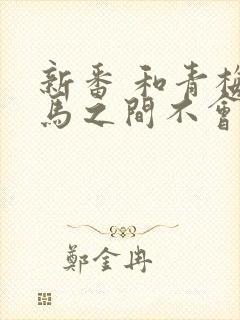 新番 和青梅
馬之間不會
鄭金冉